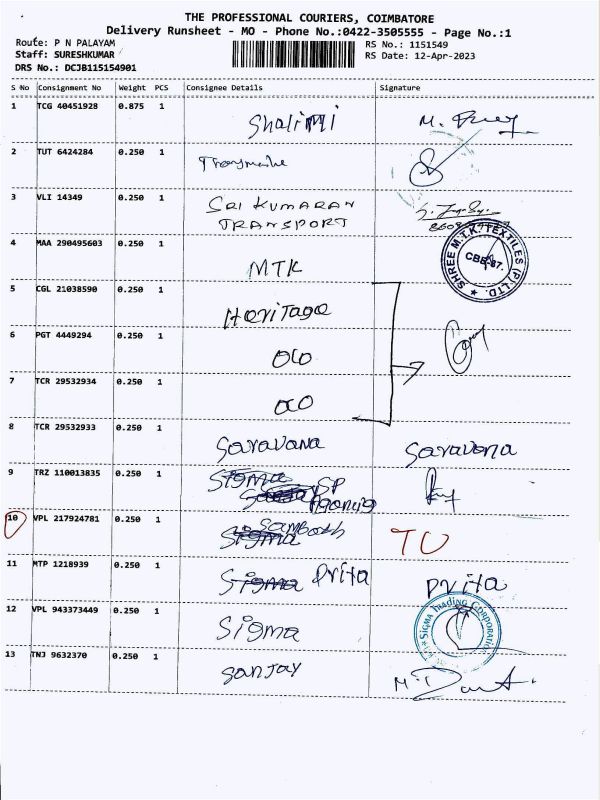 THE PROFESSIONAL COURIERS, COIMBATORE
Delivery Runsheet - MO - Phone No.:0422-3505555 - Page No.:1
Route: P N PALAYAM RS No.: 1151549
Staff: SURESHKUMAR RS Date: 12-Apr-2023
DRS No.: DCJB115154901
S No Consignment No Weight PCS Consignee Details Signature
1 TCG 40451928 0.875 1 Shalimi
2 TUT 6424284 0.250 1
3 VLI 14349 0.250 1 SRI KUMARAN
TRANSPORT
4 MAA 290495603 0.250 1 MTK
SHREE M.T.K. TEXTILES (P) LTD.
CBE-37.
5 CGL 21038590 0.250 1 Heritage
6 PGT 4449294 0.250 1 OLO
7 TCR 29532934 0.250 1
8 TCR 29532933 0.250 1 Saravana Saravana
9 TRZ 110013835 0.250 1 Sigma SP
Agencie
10 VPL 217924781 0.250 1 Sigma Santosh TU
11 MTP 1218939 0.250 1 Sigma Drita Drita
12 VPL 943373449 0.250 1 Sigma
SIGMA TRADING CORPORATION
13 TNJ 9632370 0.250 1 Sanjay